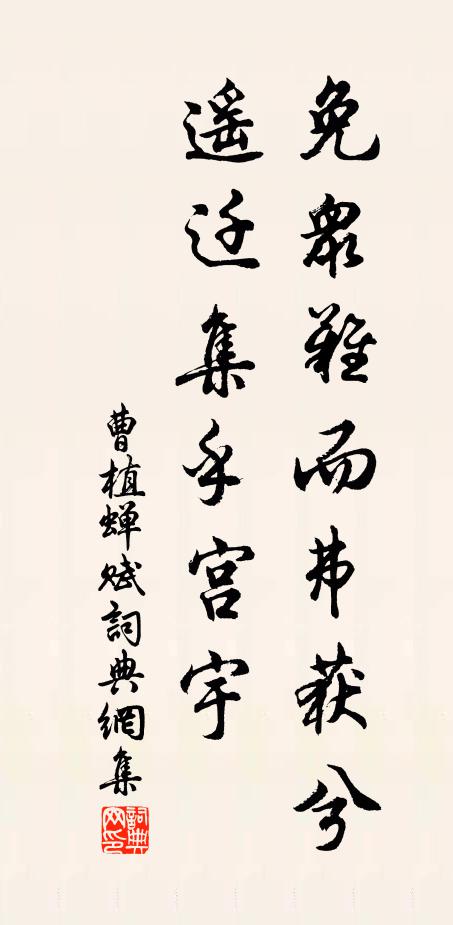 免眾難而弗获兮
遥迁集乎宫宇
曹植蝉赋詞典網集
詞典网印